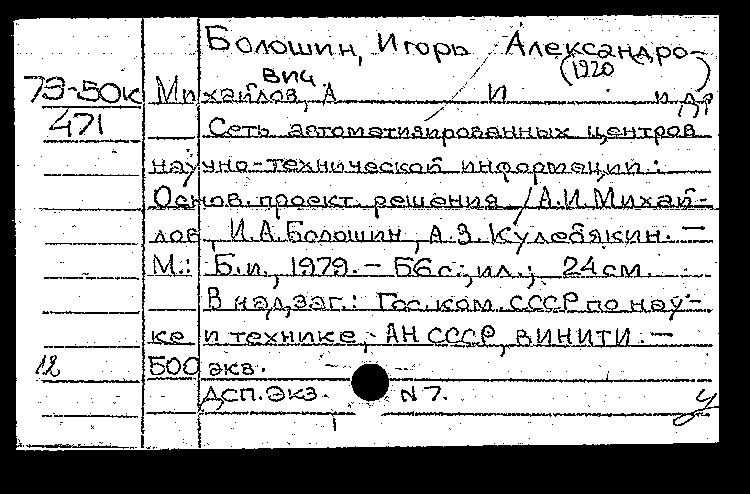 Болошин, Игорь Александро-
вич (1920 )
79-50к Михайлов, А И и др
471 Сеть автоматизированных центров
научно-технической информации:
Основ. проект. решения / А.И. Михай-
лов, И.А. Болошин, А.З. Кулебякин. —
М.: Б.и., 1979. - 56 с.; ил.; 24 см.
В надзаг.: Гос. ком. СССР по нау-
ке и технике, АН СССР, ВИНИТИ. —
12 500 экз.
ДСП. Экз. N 7. у